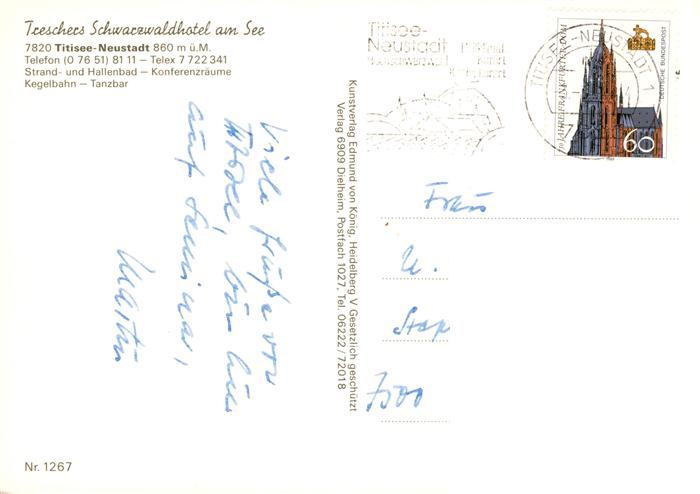 Treschers Schwarzwaldhotel am See
7820 Titisee-Neustadt 860 m ü.M.
Telefon (0 76 51) 81 11 – Telex 7 722 341
Strand- und Hallenbad – Konferenzräume
Kegelbahn – Tanzbar
Viele Grüße von
bin hier
auf Seminar,
Martin
Nr. 1267
Kunstverlag Edmund von König, Heidelberg V Gesetzlich geschützt
Verlag 6909 Dielheim, Postfach 1027, Tel. 06222/72018
Titisee-
Neustadt
Hochschwarzwald
Kneippkurort
TITISEE-NEUSTADT 1
JAHRE FRANKFURTER DOM
DEUTSCHE BUNDESPOST
60
Frau
U.
Stap
7500